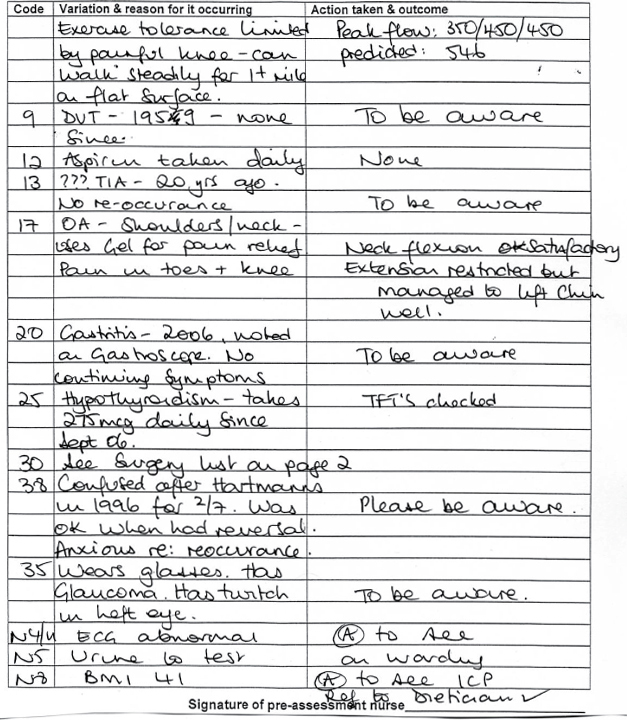 Code Variation & reason for it occurring Action taken & outcome
Exercise tolerance limited Peak flow: 350/450/450
by painful knee - can predicted: 546
walk steadily for 1+ mile
on flat surface.
9 DVT - 1959 - none To be aware
since.
12 Aspirin taken daily None
13 ??? TIA - 20 yrs ago.
No re-occurance To be aware
17 OA - Shoulders/neck -
uses Gel for pain relief Neck flexion ok satisfactory
Pain in toes + knee Extension restricted but
managed to lift chin
well.
20 Gastritis - 2006, noted
on Gastroscope. No To be aware
continuing symptoms
25 Hypothyroidism - takes TFT's checked
275mcg daily since
Sept 06.
30 See Surgery list on page 2
38 Confused after Hartmanns
in 1996 for 2/7. Was Please be aware.
OK when had reversal.
Anxious re: reoccurance.
35 Wears glasses. Has
Glaucoma. Has twitch To be aware.
in left eye.
N4/ ECG abnormal (A) to see
N5 Urine to test on
N8 BMI 41 (A) to see ICP
Ref to Dietician ✓
Signature of pre-assessment nurse